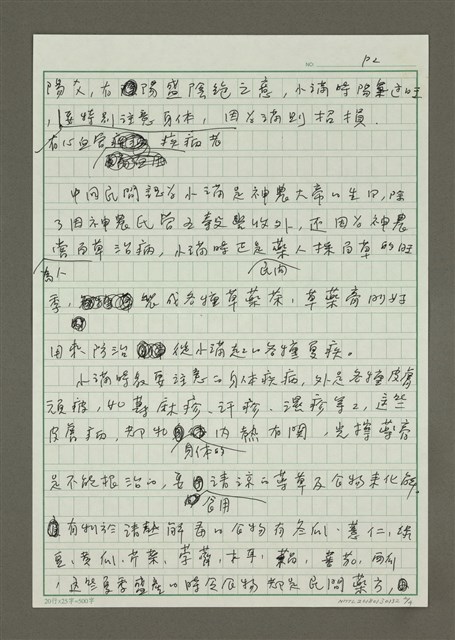 NO. P2
陽久,有陽盛陰絕之意,小滿時陽氣過旺
,要特別注意身體,因為滿則招損.
有心血管疾病者
中國民間認為小滿是神農大帝的生日,除
了因神農氏管五穀豐收外,還因為神農
嘗百草治病,小滿時正是藥人採百草的旺
為人
民間
季,製成各種草藥茶、草藥膏的好
用來防治從小滿起的各種夏疾。
小滿時最要注意的身體疾病,外是各種皮膚
頑癬,如蕁麻疹、汗疹、濕疹等等,這些
皮膚病,都和內熱有關,光擦藥膏
身體的
是不能根治的,要清涼的藥草及食物來化解。
食用
有利於清熱解毒的食物有冬瓜、薏仁、綠
豆、黃瓜、芹菜、荸薺、木耳、番茄、西瓜
,這些夏季盛產的時令食物都是民間藥方,
20行×25字=500字